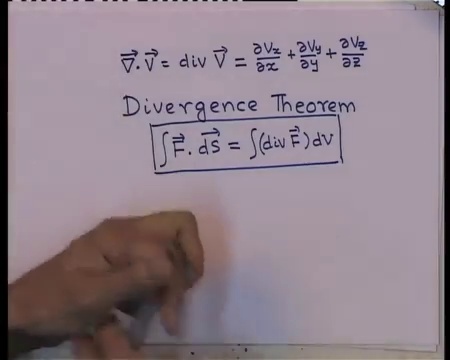 ∇⃗.V⃗ = div V⃗ = ∂Vx/∂x + ∂Vy/∂y + ∂Vz/∂z
Divergence Theorem
∫F⃗. dS⃗ = ∫(div F⃗) dV